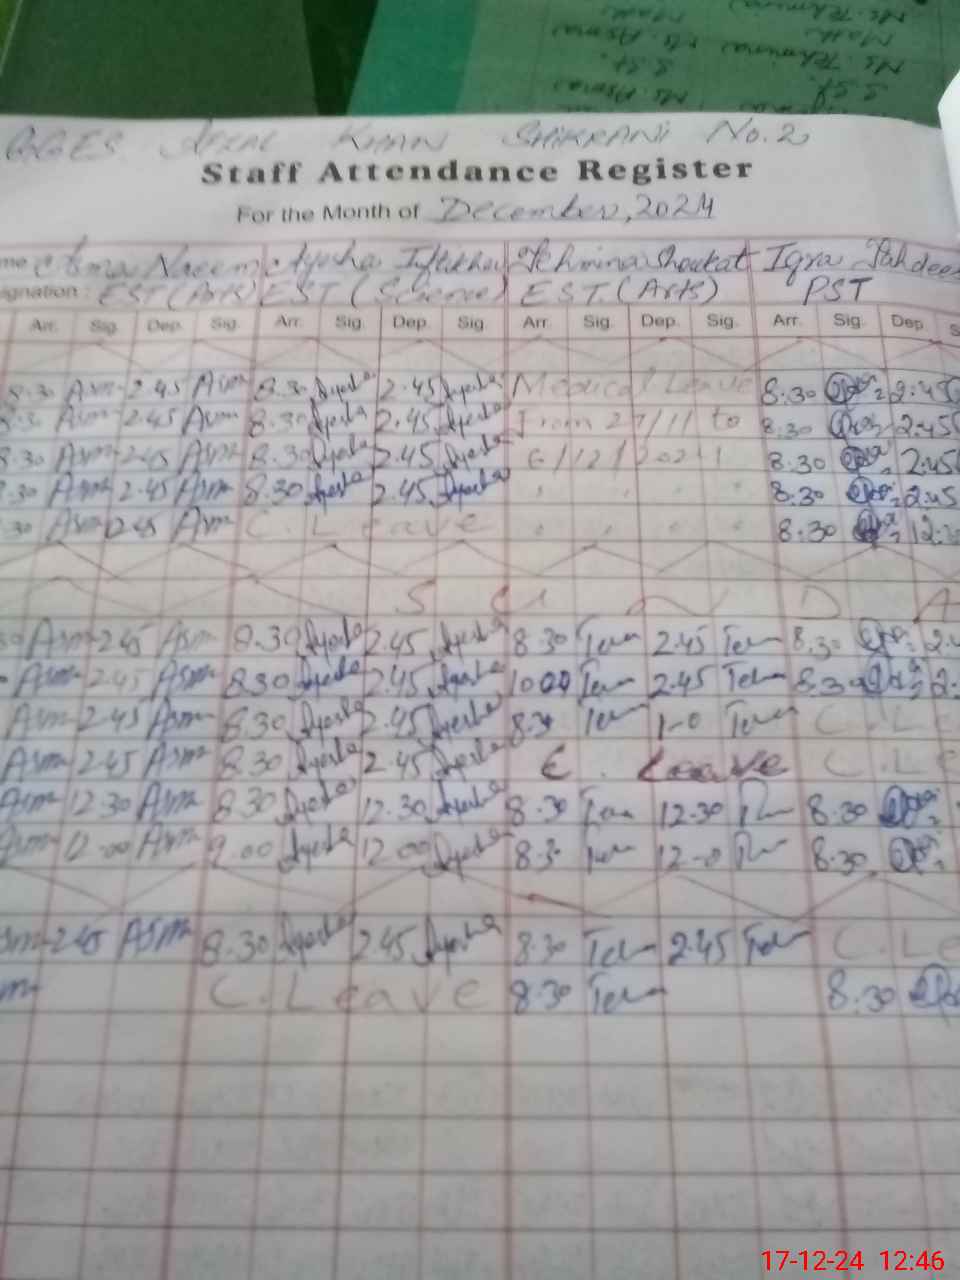 GGES Afzal Khan Shikrani No.2
Staff Attendance Register
For the Month of December, 2024
me Asma Naeem Ayesha Iftikhar Tehmina Shoukat Iqra
ignation : EST (Arts) EST (Science) EST. (Arts) PST
Arr. Sig. Dep. Sig. Arr. Sig. Dep. Sig. Arr. Sig. Dep. Sig. Arr. Sig. Dep. S
8.30 Asm 2.45 Asm 8.30 Ayesha 2.45 Ayesha Medical Leave 8.30 2.45
8.30 Asm 2.45 Asm 8.30 Ayesha 2.45 Ayesha From 27/11 to 8.30 2.45
8.30 Asm 2.45 Asm 8.30 Ayesha 2.45 Ayesha 6/12/2024 8.30 2.45
.30 Asm 2.45 Asm 8.30 Ayesha 2.45 Ayesha " " " " 8.30 2.45
30 Asm 2.45 Asm C. Leave " " " " 8.30 12.
S U N D A
Asm 2.45 Asm 8.30 Ayesha 2.45 Ayesha 8.30 Tem 2.45 Tem 8.30 2.
Asm 2.45 Asm 8.30 Ayesha 2.45 Ayesha 10.00 Tem 2.45 Tem 8.30 2.
Asm 2.45 Asm 8.30 Ayesha 2.45 Ayesha 8.30 Tem 1-0 Tem C.Le
Asm 2.45 Asm 8.30 Ayesha 2.45 Ayesha C. Leave C.Le
Asm 12.30 Asm 8.30 Ayesha 12.30 Ayesha 8.30 Tem 12.30 8.30
Asm 12.00 Asm 9.00 Ayesha 12.00 Ayesha 8.30 Tem 12-0 8.30
sm 2.45 Asm 8.30 Ayesha 2.45 Ayesha 8.30 Tem 2.45 Tem C.Le
m C. Leave 8.30 Tem 8.30
17-12-24 12:46